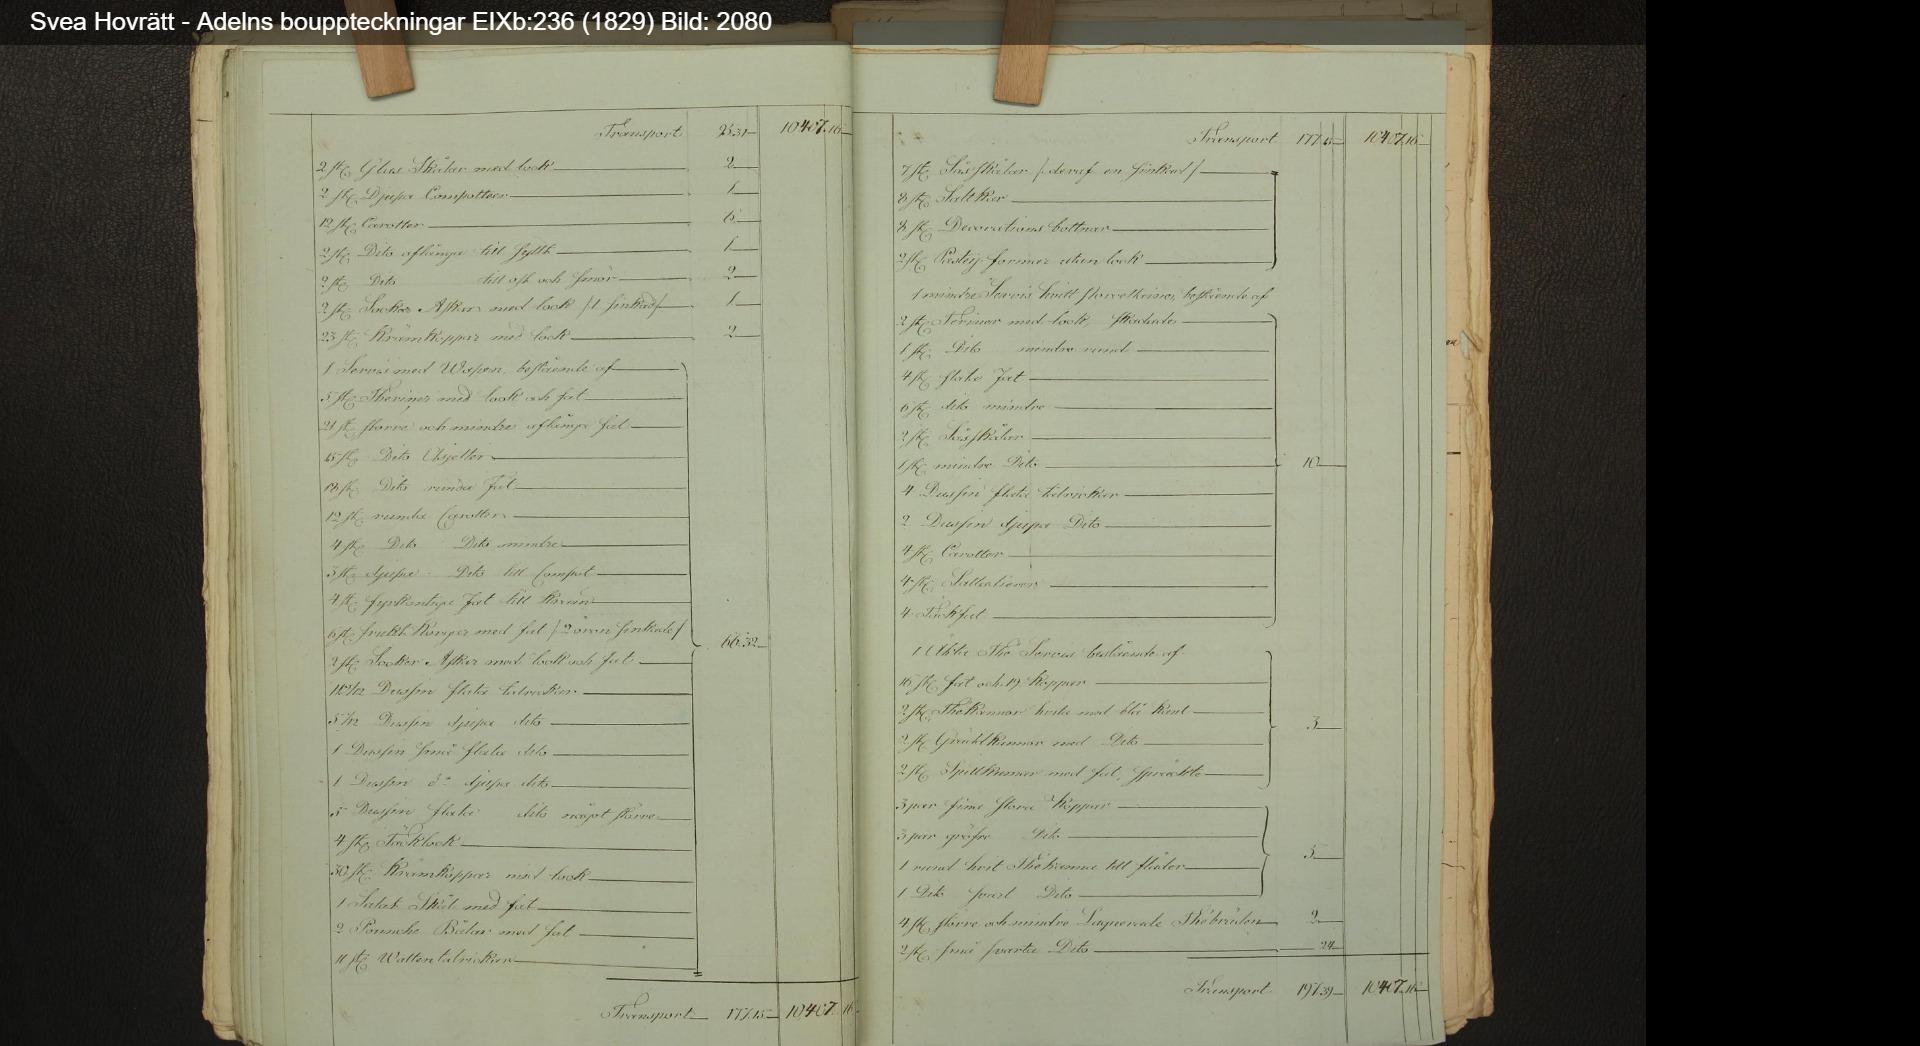 Svea Hovrätt - Adelns bouppteckningar EIXb:236 (1829) Bild: 2080
Transport 10407.16
2 st. Glas Skålar med lock 2
2 st. Djupa Compottier 1
12 st. Carotter 6
2 st. Dito aflånga till Sylth 1
2 st. Dito till ost och smör 2
2 st. Socker Askar med lock /1 sinkad/ 1
23 st. Krämkoppar med lock 2
1 Servis med Wapen, bestående af
5 st. Theriner med lock och fat
21 st. större och mindre aflånga fat
15 st. Dito Assietter
18 st. Dito runda Fat
12 st. runda Carotter
4 st. Dito Dito mindre
3 st. djupa Dito till Compot
4 st. fyrkantiga Fat till Kräm
6 st. frukt Korgar med fat /2 öron sinkade/ 66.32
2 st. Socker Askar med lock och fat
Dussin flata talrickar
5 1/12 Dussin djupa dito
1 Dussin små flata dito
1 Dussin do djupa dito
5 Dussin flata dito något större
4 st. Täcklock
30 st. Krämkoppar med lock
1 Salat Skål med fat
2 Pounche Bålar med fat
11 st. Wattentalrickar
Transport 177.15 10407.16
Transport 177.15 10407.16
7 st. Såsskålar /deraf en sinkad/
8 st. Saltkar
8 st. Decorations bottnar
2 st. Pastej formar utan lock
1 mindre Servis hvitt bestående af
2 st. Teriner med lock, skadade
1 st. Dito mindre rund
4 st. flata Fat
6 st. dito mindre
2 st. Såsskålar
1 st. mindre Dito 10
4 Dussin flata talrickar
2 Dussin djupa Dito
4 st. Carotter
4 st.
4
1 Äkta The Servis bestående af
16 st. fat och 19 Koppar
2 st. Thekannor hvita med blå Kant 3
2 st. Gräddkannor med Dito
2 st. Spillkummar med fat, spräckta
3 par fina stora Koppar
3 par gröfre Dito
1 rund hvit Thékanna till fläder 5
1 Dito svart Dito
4 st. större och mindre Laquerade Thébräden 2
2 st. små svarta Dito 24
Transport 197.39 10407.16